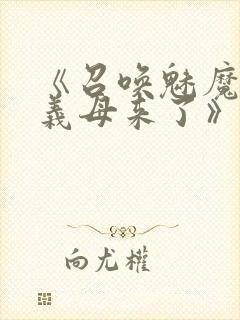 《召唤魅魔
義母来了》
向尤權